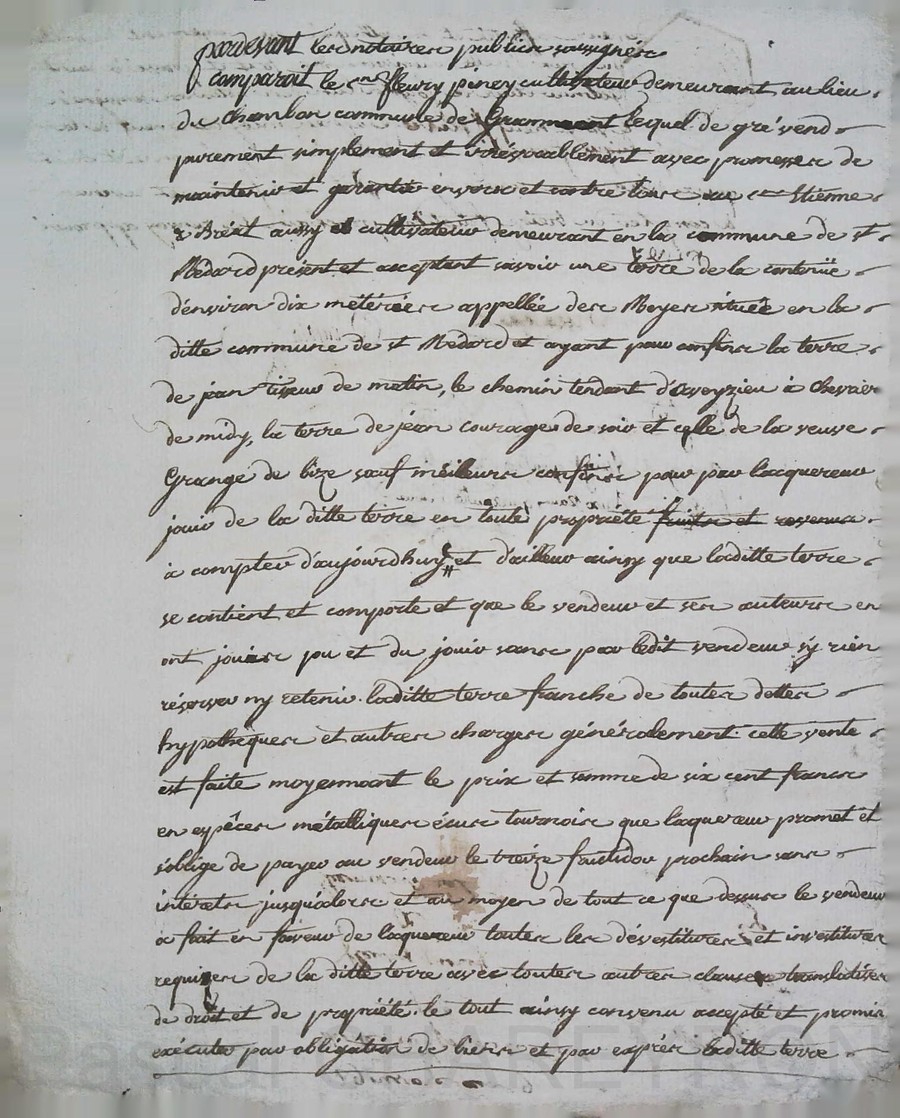 pardevant les notaires publics soussignés
comparoit le cen fleury piney cultivateur demeurant au lieu
du chambon commune de Grammont lequel de gré vend
purement simplement et irrévocablement avec promesse de
maintenir et garantir envers et contre tous au cen Etienne
Bréat aussy cultivateur demeurant en la commune de st
Médard présent et acceptant savoir une terre de la contenüe
d'environ dix métérées appellée des Noyers située en la
ditte commune de st Médard et ayant pour confins la terre
de jean tisseur de matin, le chemin tendant d'aveyzieu à Chevrier
de midy, la terre de jean courage de soir et celle de la veuve
Grange de bize sauf meilleurs confins pour par lacquereur
jouir de la ditte terre en toute propriété fruits et revenus
à compter d'aujourdhuy # et d'ailleur ainsy que laditte terre
se contient et comporte et que le vendeur et ses auteurs en
ont jouis pu et du jouir sans par ledit vendeur s'y rien
réserver ny retenir. laditte terre franche de toutes dettes
hypotheques et autres charges généralement. cette vente
est faite moyennant le prix et somme de six cent francs
en espèces métalliques écus tournois que lacquereur promet et
s'oblige de payer au vendeur le treize fructidor prochain sans
intérets jusqu'alors et au moyen de tout ce que dessus le vendeur
a fait en faveur de lacquereur toutes les dévestitures et investitures
requises de la ditte terre avec toutes autres clauses translatives
de droit et de propriété. le tout ainsy convenu accepté et promis
exécuter par obligation de biens et par exprés laditte terre